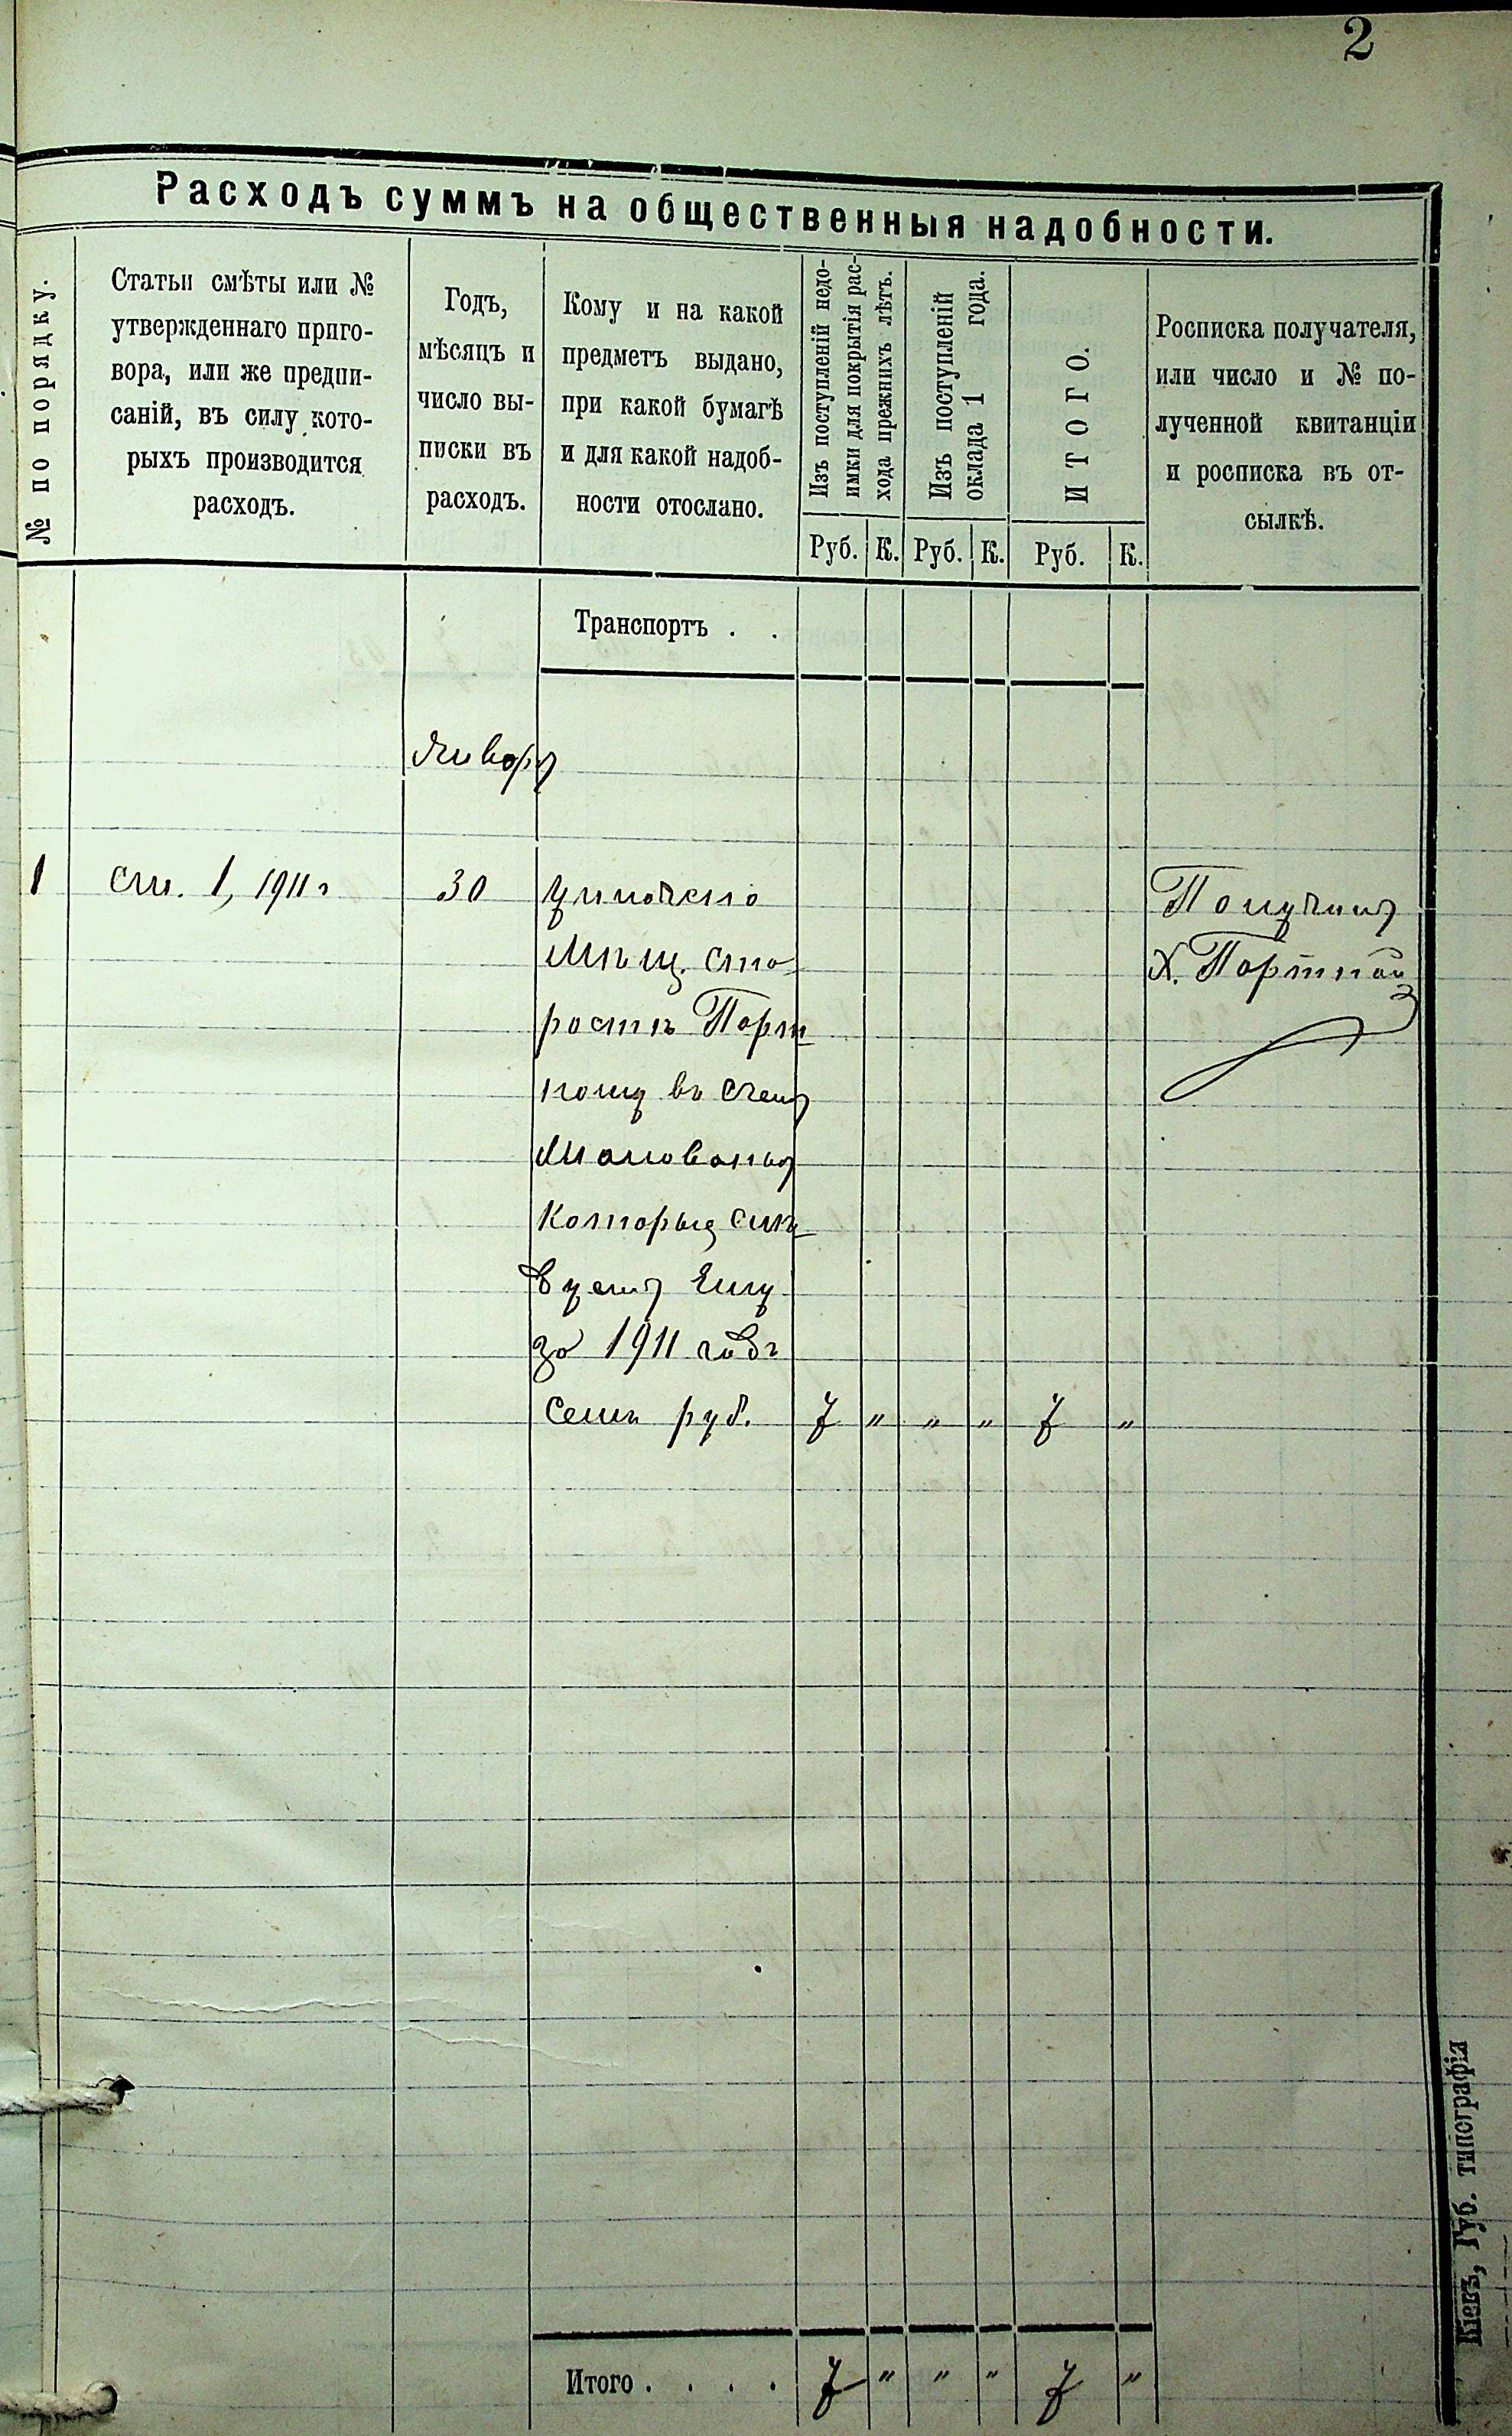 2
Расходъ суммъ на общественныя надобности.
№ по порядку.
Статьи смѣты или №
утвержденнаго приго-
вора, или же предпи-
саній, въ силу кото-
рыхъ производится
расходъ.
Годъ,
мѣсяцъ и
число вы-
писки въ
расходъ.
Кому и на какой
предметъ выдано,
при какой бумагѣ
и для какой надоб-
ности отослано.
Изъ поступленій недо-
имки для покрытія рас-
хода прежнихъ лѣтъ.
Изъ поступленій
оклада 1 года.
ИТОГО.
Росписка получателя,
или число и № по-
лученной квитанціи
и росписка въ от-
сылкѣ.
Руб. К. Руб. К. Руб. К.
Транспортъ . .
Январь
1 ст. 1, 1911 г 30 уплочено Получилъ
Мѣщ. ста X. Портной
ростѣ Порт
ному въ счетъ
жалованья
которые слѣ
дуетъ ему
за 1911 годъ
семь руб. 7 " " " 7 "
Итого . . . . 7 " " " 7 "
Кіевъ, Губ. типографія